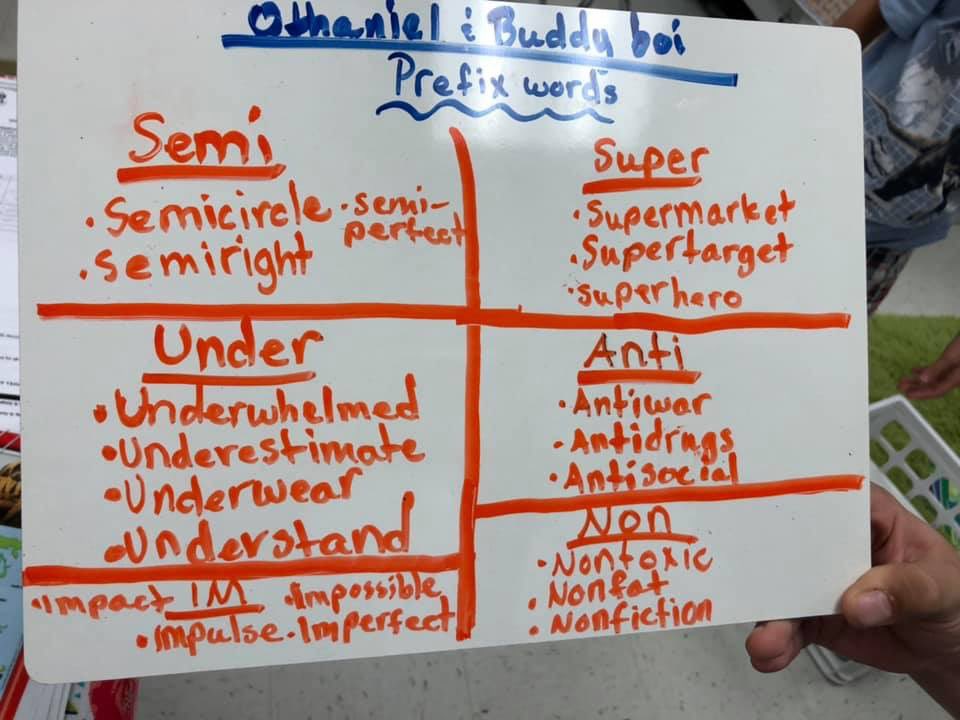 Othaniel & Buddy boi
Prefix words
Semi
• Semicircle • semi-
perfect
• semiright
Super
• Supermarket
• Supertarget
• superhero
Under
• Underwhelmed
• Underestimate
• Underwear
• Understand
Anti
• Antiwar
• Antidrugs
• Antisocial
• Impact IM • Impossible
• impulse • Imperfect
Non
• Nontoxic
• Nonfat
• Nonfiction